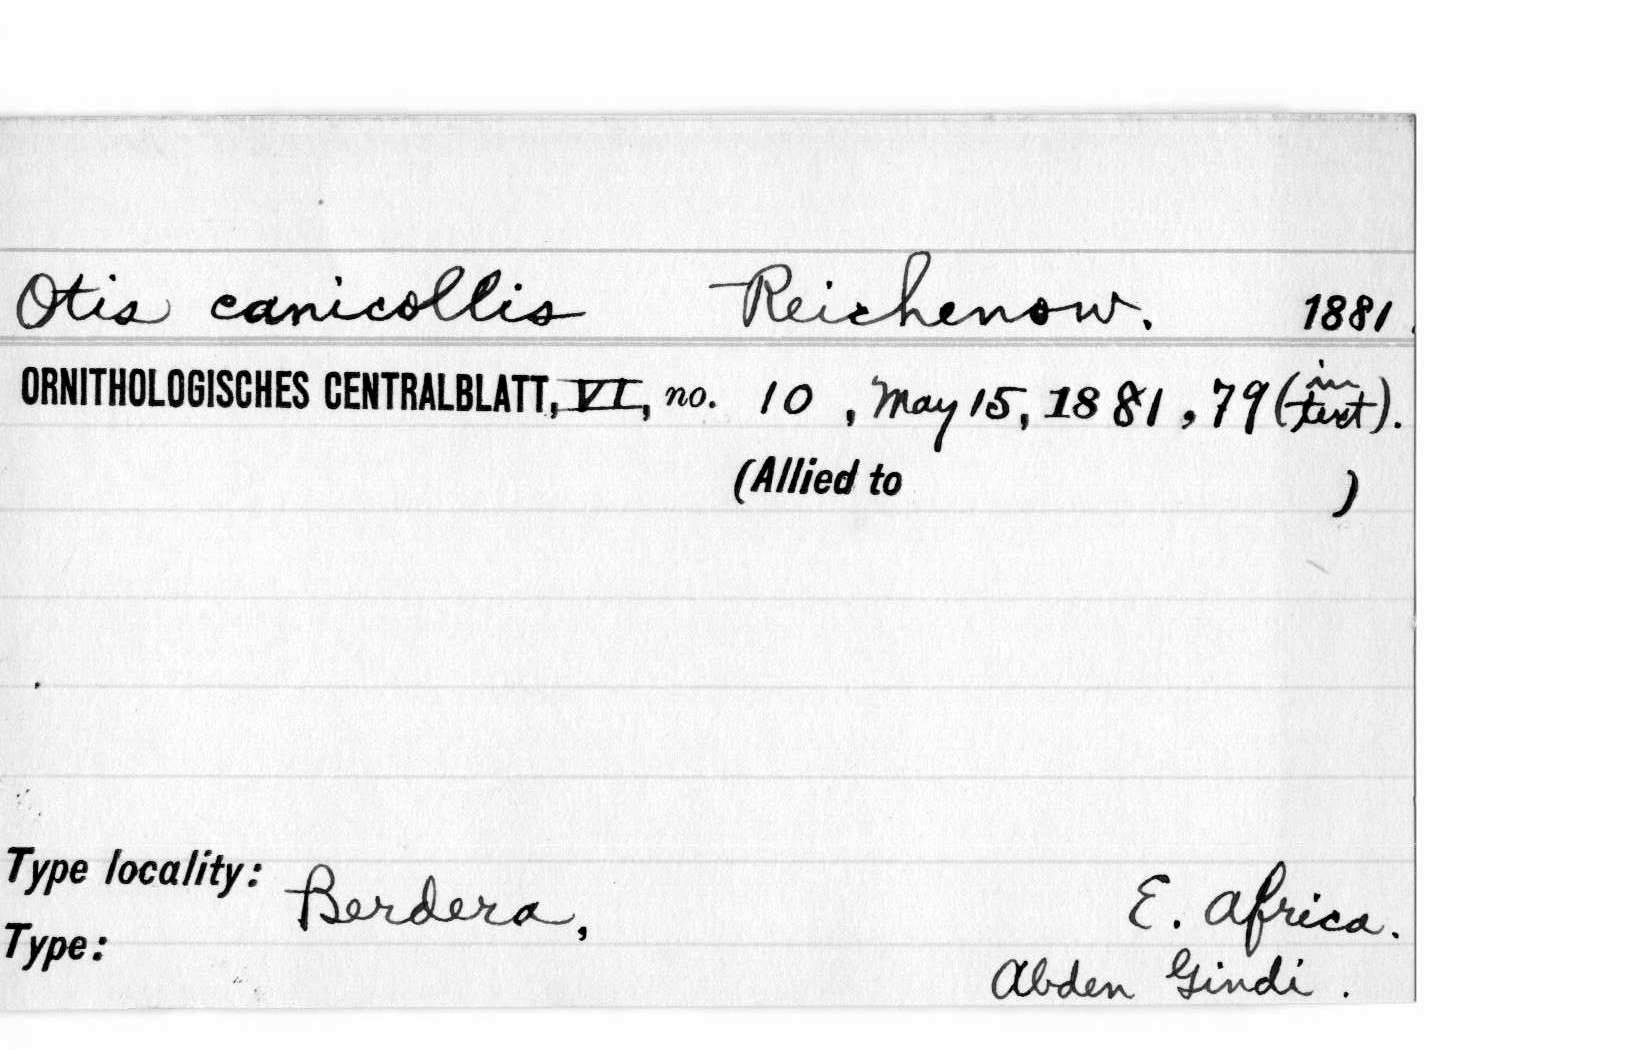 Otis canicollis Reichenow. 1881.
ORNITHOLOGISCHES CENTRALBLATT, VI, no. 10, May 15, 1881, 79 (in text).
(Allied to )
Type locality: Berdera, E. Africa.
Type: Abden Gindi.